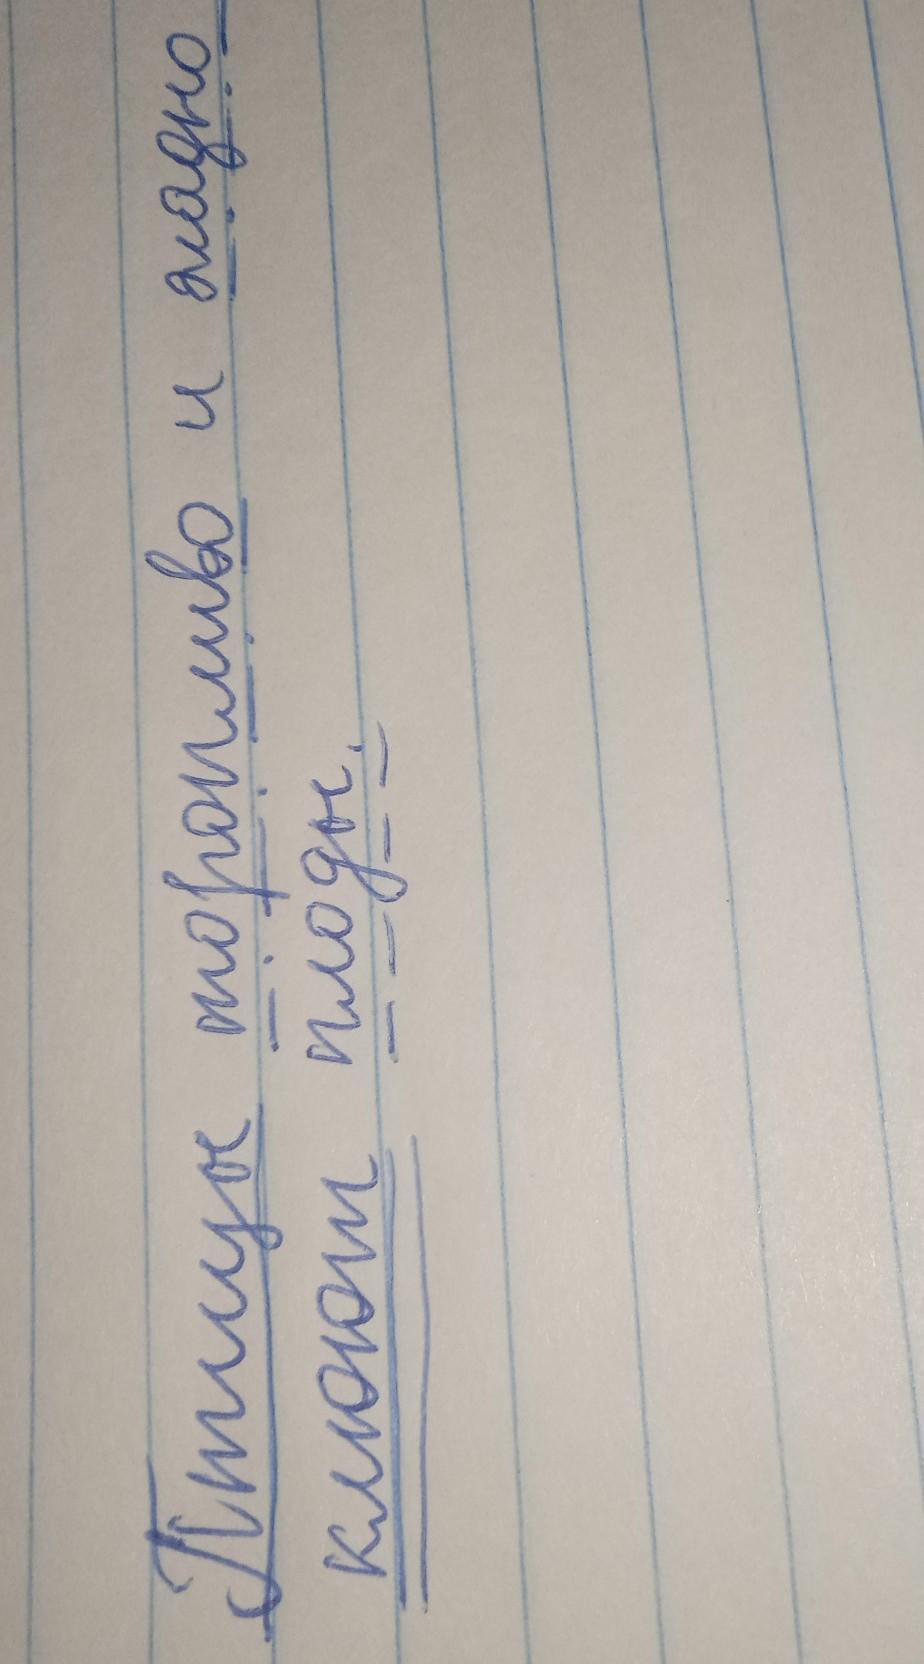 Птицы торопливо и жадно
клюют плоды.